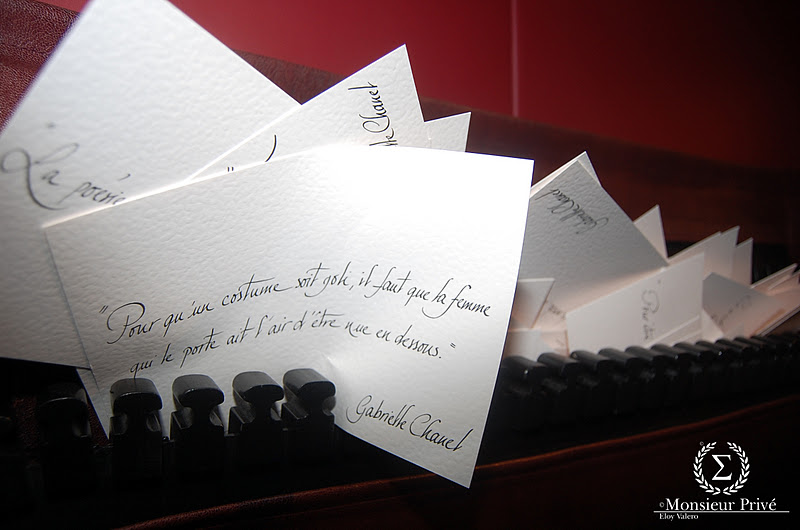 "La poésie
lle Chanel
"Pour qu'un costume soit joli, il faut que la femme
qui le porte ait l'air d'être nue en dessous."
Gabrielle Chanel
Gabrielle Chanel
Σ
© Monsieur Privé
Eloy Valero